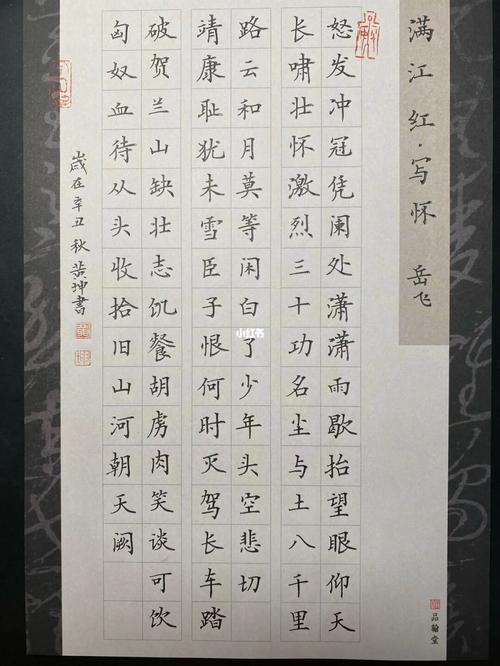 满江红·写怀 岳飞
怒发冲冠凭阑处潇潇雨歇抬望眼仰天
长啸壮怀激烈三十功名尘与土八千里
路云和月莫等闲白了少年头空悲切
靖康耻犹未雪臣子恨何时灭驾长车踏
破贺兰山缺壮志饥餐胡虏肉笑谈可饮
匈奴血待从头收拾旧山河朝天阙
歲在辛丑秋 黄坤書
品翰堂
小红书